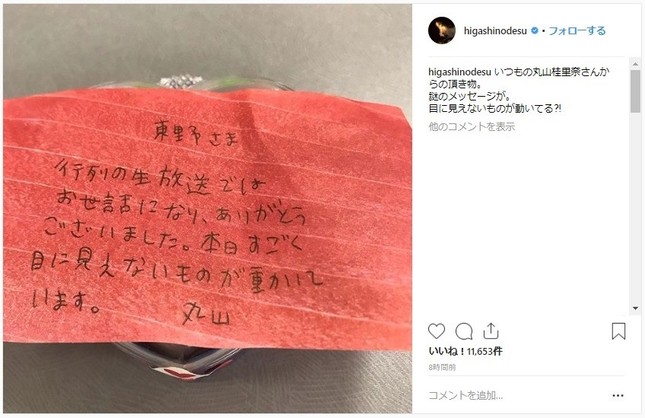 東野さま
行列の生放送では
お世話になり、ありがとう
ございました。本日すごく
目に見えないものが動いて
います。 丸山
higashinodesu • フォローする
higashinodesu いつもの丸山桂里奈さんか
らの頂き物。
謎のメッセージが。
目に見えないものが動いてる?!
他のコメントを表示
いいね！11,653件
8時間前
コメントを追加...